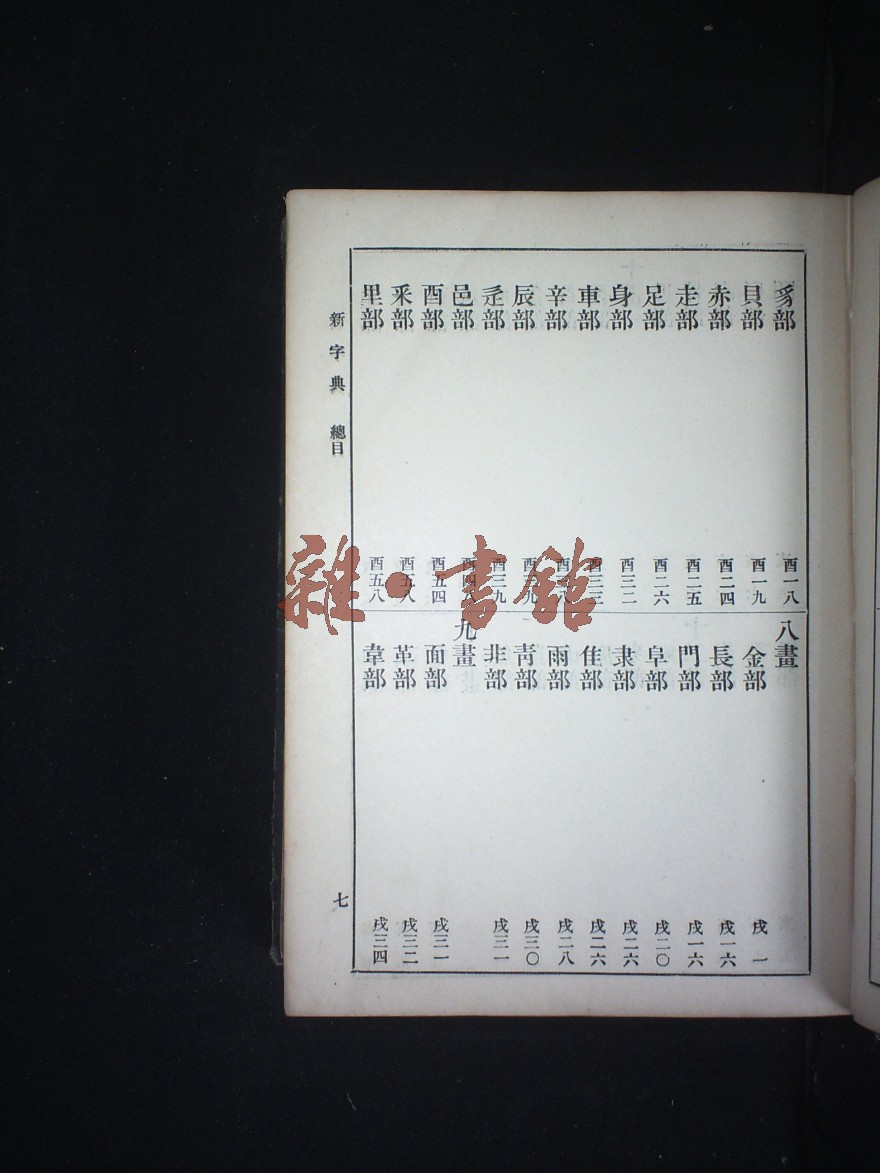 豸部 酉一八
貝部 酉一九
赤部 酉二四
走部 酉二五
足部 酉二六
身部 酉三二
車部 酉三三
辛部 酉 八
辰部 酉 九
辵部 酉三九
邑部 酉四八
酉部 酉五四
釆部 酉五八
里部 酉五八
八畫
金部 戌一
長部 戌一六
門部 戌一六
阜部 戌二〇
隶部 戌二六
隹部 戌二六
雨部 戌二八
靑部 戌三〇
非部 戌三一
九畫
面部 戌三一
革部 戌三二
韋部 戌三四
新字典 總目 七
雜·書館